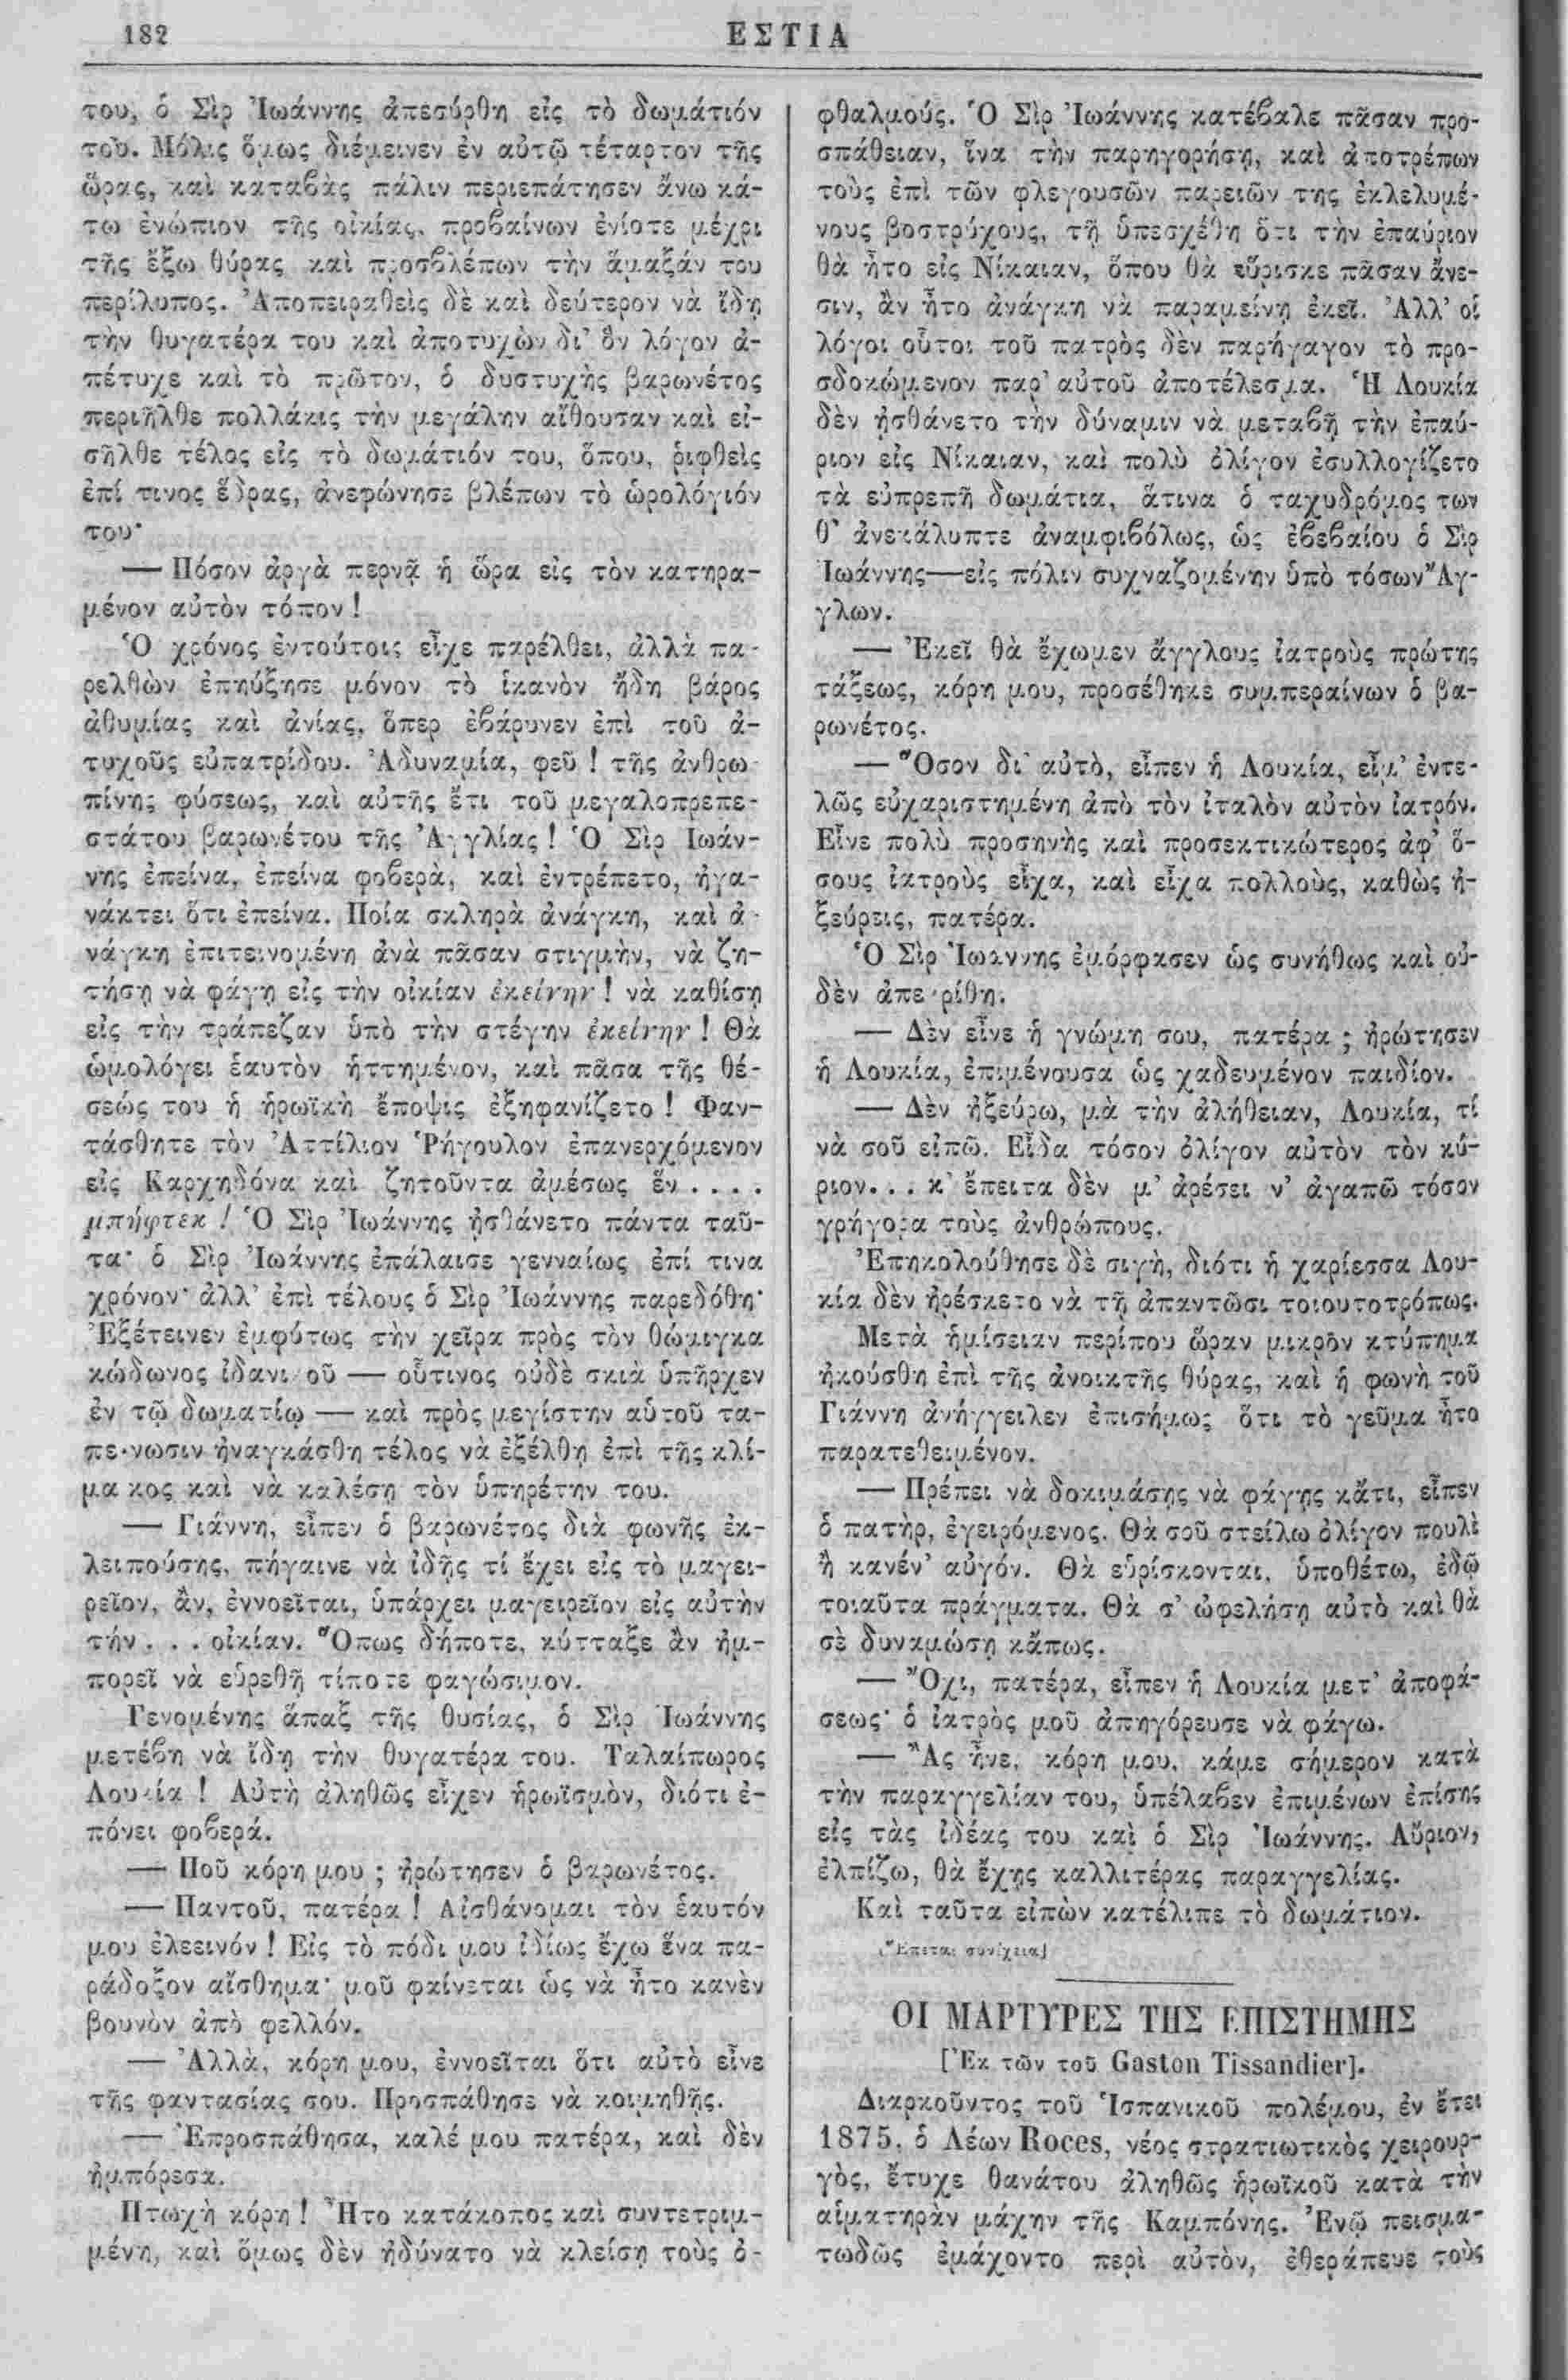 182
ΕΣΤΙΑ
του, ὁ Σὶρ Ἰωάννης ἀπεσύρθη εἰς τὸ δωμάτιόν
του. Μόλις ὅμως διέμεινεν ἐν αὐτῷ τέταρτον τῆς
ὥρας, καὶ καταβὰς πάλιν περιεπάτησεν ἄνω κά-
τω ἐνώπιον τῆς οἰκίας, προβαίνων ἐνίοτε μέχρι
τῆς ἔξω θύρας καὶ προσβλέπων τὴν ἅμαξάν του
περίλυπος. Ἀποπειραθεὶς δὲ καὶ δεύτερον νὰ ἴδῃ
τὴν θυγατέρα του καὶ ἀποτυχὼν δι’ ὃν λόγον ἀ-
πέτυχε καὶ τὸ πρῶτον, ὁ δυστυχὴς βαρωνέτος
περιῆλθε πολλάκις τὴν μεγάλην αἴθουσαν καὶ εἰ-
σῆλθε τέλος εἰς τὸ δωμάτιόν του, ὅπου, ῥιφθεὶς
ἐπί τινος ἕδρας, ἀνεφώνησε βλέπων τὸ ὡρολόγιόν
του·
— Πόσον ἀργὰ περνᾷ ἡ ὥρα εἰς τὸν κατηρα-
μένον αὐτὸν τόπον!
Ὁ χρόνος ἐντούτοις εἶχε παρέλθει, ἀλλὰ πα-
ρελθὼν ἐπηύξησε μόνον τὸ ἱκανὸν ἤδη βάρος
ἀθυμίας καὶ ἀνίας, ὅπερ ἐβάρυνεν ἐπὶ τοῦ ἀ-
τυχοῦς εὐπατρίδου. Ἀδυναμία, φεῦ! τῆς ἀνθρω-
πίνης φύσεως, καὶ αὐτῆς ἔτι τοῦ μεγαλοπρεπε-
στάτου βαρωνέτου τῆς Ἀγγλίας! Ὁ Σὶρ Ἰωάν-
νης ἐπείνα, ἐπείνα φοβερὰ, καὶ ἐντρέπετο, ἠγα-
νάκτει ὅτι ἐπείνα. Ποία σκληρὰ ἀνάγκη, καὶ ἀ-
νάγκη ἐπιτεινομένη ἀνὰ πᾶσαν στιγμὴν, νὰ ζη-
τήσῃ νὰ φάγῃ εἰς τὴν οἰκίαν ἐκείνην! νὰ καθίσῃ
εἰς τὴν τράπεζαν ὑπὸ τὴν στέγην ἐκείνην! Θὰ
ὡμολόγει ἑαυτὸν ἡττημένον, καὶ πᾶσα τῆς θέ-
σεώς του ἡ ἡρωϊκὴ ἔποψις ἐξηφανίζετο! Φαν-
τάσθητε τὸν Ἀττίλιον Ῥήγουλον ἐπανερχόμενον
εἰς Καρχηδόνα καὶ ζητοῦντα ἀμέσως ἕν . . . .
μπήφτεκ! Ὁ Σὶρ Ἰωάννης ᾐσθάνετο πάντα ταῦ-
τα· ὁ Σὶρ Ἰωάννης ἐπάλαισε γενναίως ἐπί τινα
χρόνον· ἀλλ’ ἐπὶ τέλους ὁ Σὶρ Ἰωάννης παρεδόθη·
Ἐξέτεινεν ἐμφύτως τὴν χεῖρα πρὸς τὸν θώμιγκα
κώδωνος ἰδανικοῦ — οὗτινος οὐδὲ σκιὰ ὑπῆρχεν
ἐν τῷ δωματίῳ — καὶ πρὸς μεγίστην αὑτοῦ τα-
πείνωσιν ἠναγκάσθη τέλος νὰ ἐξέλθῃ ἐπὶ τῆς κλί-
μακος καὶ νὰ καλέσῃ τὸν ὑπηρέτην του.
— Γιάννη, εἶπεν ὁ βαρωνέτος διὰ φωνῆς ἐκ-
λειπούσης, πήγαινε νὰ ἰδῇς τί ἔχει εἰς τὸ μαγει-
ρεῖον, ἂν, ἐννοεῖται, ὑπάρχει μαγειρεῖον εἰς αὐτὴν
τήν . . . οἰκίαν. Ὅπως δήποτε, κύτταξε ἂν ἠμ-
πορεῖ νὰ εὑρεθῇ τίποτε φαγώσιμον.
Γενομένης ἅπαξ τῆς θυσίας, ὁ Σὶρ Ἰωάννης
μετέβη νὰ ἴδῃ τὴν θυγατέρα του. Ταλαίπωρος
Λουκία! Αὐτὴ ἀληθῶς εἶχεν ἡρωϊσμὸν, διότι ἐ-
πόνει φοβερά.
— Ποῦ κόρη μου; ἠρώτησεν ὁ βαρωνέτος.
— Παντοῦ, πατέρα! Αἰσθάνομαι τὸν ἑαυτόν
μου ἐλεεινόν! Εἰς τὸ πόδι μου ἰδίως ἔχω ἕνα πα-
ράδοξον αἴσθημα· μοῦ φαίνεται ὡς νὰ ἦτο κανὲν
βουνὸν ἀπὸ φελλόν.
— Ἀλλὰ, κόρη μου, ἐννοεῖται ὅτι αὐτὸ εἶνε
τῆς φαντασίας σου. Προσπάθησε νὰ κοιμηθῇς.
— Ἐπροσπάθησα, καλέ μου πατέρα, καὶ δὲν
ἠμπόρεσα.
Πτωχὴ κόρη! Ἦτο κατάκοπος καὶ συντετριμ-
μένη, καὶ ὅμως δὲν ἠδύνατο νὰ κλείσῃ τοὺς ὀ-
φθαλμούς. Ὁ Σὶρ Ἰωάννης κατέβαλε πᾶσαν προ-
σπάθειαν, ἵνα τὴν παρηγορήσῃ, καὶ ἀποτρέπων
τοὺς ἐπὶ τῶν φλεγουσῶν παρειῶν της ἐκλελυμέ-
νους βοστρύχους, τῇ ὑπεσχέθη ὅτι τὴν ἐπαύριον
θὰ ἦτο εἰς Νίκαιαν, ὅπου θὰ εὕρισκε πᾶσαν ἄνε-
σιν, ἂν ἦτο ἀνάγκη νὰ παραμείνῃ ἐκεῖ. Ἀλλ’ οἱ
λόγοι οὗτοι τοῦ πατρὸς δὲν παρήγαγον τὸ προ-
σδοκώμενον παρ’ αὐτοῦ ἀποτέλεσμα. Ἡ Λουκία
δὲν ᾐσθάνετο τὴν δύναμιν νὰ μεταβῇ τὴν ἐπαύ-
ριον εἰς Νίκαιαν, καὶ πολὺ ὀλίγον ἐσυλλογίζετο
τὰ εὐπρεπῆ δωμάτια, ἅτινα ὁ ταχυδρόμος των
θ’ ἀνεκάλυπτε ἀναμφιβόλως, ὡς ἐβεβαίου ὁ Σὶρ
Ἰωάννης—εἰς πόλιν συχναζομένην ὑπὸ τόσων Ἄγ-
γλων.
— Ἐκεῖ θὰ ἔχωμεν ἄγγλους ἰατροὺς πρώτης
τάξεως, κόρη μου, προσέθηκε συμπεραίνων ὁ βα-
ρωνέτος.
— Ὅσον δι’ αὐτὸ, εἶπεν ἡ Λουκία, εἶμ’ ἐντε-
λῶς εὐχαριστημένη ἀπὸ τὸν ἰταλὸν αὐτὸν ἰατρόν.
Εἶνε πολὺ προσηνὴς καὶ προσεκτικώτερος ἀφ’ ὅ-
σους ἰατροὺς εἶχα, καὶ εἶχα πολλοὺς, καθὼς ἠ-
ξεύρεις, πατέρα.
Ὁ Σὶρ Ἰωάννης ἐμόρφασεν ὡς συνήθως καὶ οὐ-
δὲν ἀπεκρίθη.
— Δὲν εἶνε ἡ γνώμη σου, πατέρα; ἠρώτησεν
ἡ Λουκία, ἐπιμένουσα ὡς χαδευμένον παιδίον.
— Δὲν ἠξεύρω, μὰ τὴν ἀλήθειαν, Λουκία, τί
νὰ σοῦ εἰπῶ. Εἶδα τόσον ὀλίγον αὐτὸν τὸν κύ-
ριον... κ’ ἔπειτα δὲν μ’ ἀρέσει ν’ ἀγαπῶ τόσον
γρήγορα τοὺς ἀνθρώπους.
Ἐπηκολούθησε δὲ σιγὴ, διότι ἡ χαρίεσσα Λου-
κία δὲν ἠρέσκετο νὰ τῇ ἀπαντῶσι τοιουτοτρόπως.
Μετὰ ἡμίσειαν περίπου ὥραν μικρὸν κτύπημα
ἠκούσθη ἐπὶ τῆς ἀνοικτῆς θύρας, καὶ ἡ φωνὴ τοῦ
Γιάννη ἀνήγγειλεν ἐπισήμως ὅτι τὸ γεῦμα ἦτο
παρατεθειμένον.
— Πρέπει νὰ δοκιμάσῃς νὰ φάγῃς κἄτι, εἶπεν
ὁ πατὴρ, ἐγειρόμενος. Θὰ σοῦ στείλω ὀλίγον πουλὶ
ἢ κανέν’ αὐγόν. Θὰ εὑρίσκονται, ὑποθέτω, ἐδῶ
τοιαῦτα πράγματα. Θὰ σ’ ὠφελήσῃ αὐτὸ καὶ θὰ
σὲ δυναμώσῃ κἄπως.
— Ὄχι, πατέρα, εἶπεν ἡ Λουκία μετ’ ἀποφά-
σεως· ὁ ἰατρὸς μοῦ ἀπηγόρευσε νὰ φάγω.
— Ἂς ἦνε, κόρη μου, κάμε σήμερον κατὰ
τὴν παραγγελίαν του, ὑπέλαβεν ἐπιμένων ἐπίσης
εἰς τὰς ἰδέας του καὶ ὁ Σὶρ Ἰωάννης. Αὔριον,
ἐλπίζω, θὰ ἔχῃς καλλιτέρας παραγγελίας.
Καὶ ταῦτα εἰπὼν κατέλιπε τὸ δωμάτιον.
[Ἕπεται συνέχεια]
ΟΙ ΜΑΡΤΥΡΕΣ ΤΗΣ ΕΠΙΣΤΗΜΗΣ
[Ἐκ τῶν τοῦ Gaston Tissandier].
Διαρκοῦντος τοῦ Ἱσπανικοῦ πολέμου, ἐν ἔτει
1875, ὁ Λέων Roces, νέος στρατιωτικὸς χειρουρ-
γὸς, ἔτυχε θανάτου ἀληθῶς ἡρωϊκοῦ κατὰ τὴν
αἱματηρὰν μάχην τῆς Καμπόνης. Ἐνῷ πεισμα-
τωδῶς ἐμάχοντο περὶ αὐτὸν, ἐθεράπευε τοὺς